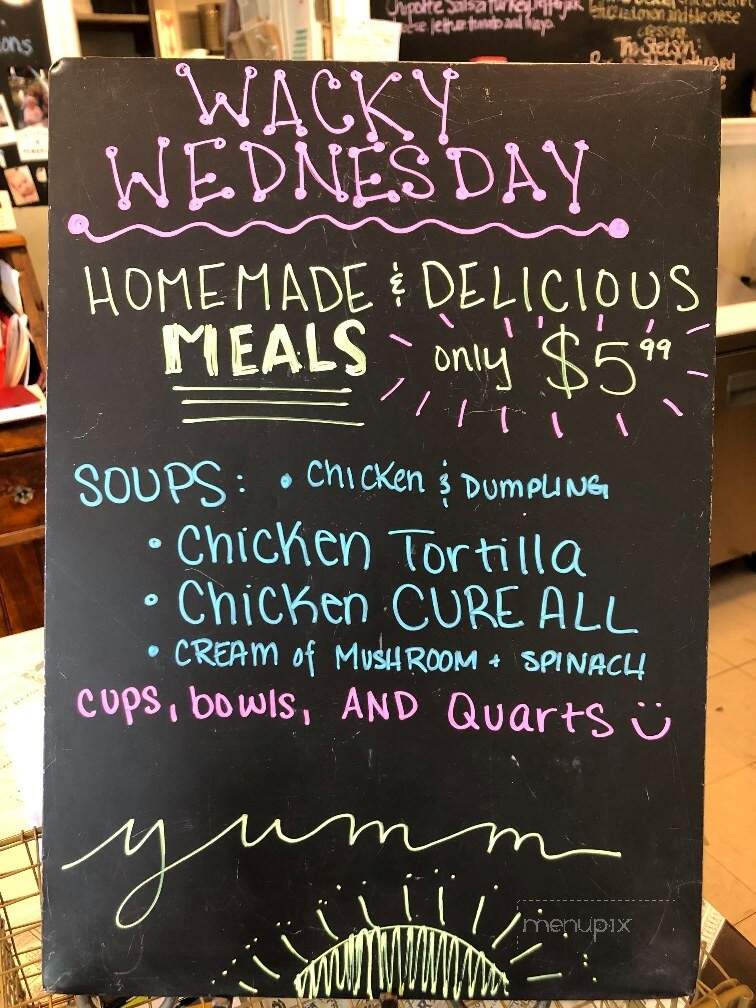 WACKY
WEDNESDAY
HOMEMADE & DELICIOUS
MEALS only $5.99
SOUPS: • Chicken & DUMPLING
• Chicken Tortilla
• Chicken CURE ALL
• CREAM of MUSHROOM + SPINACH
cups, bowls, AND Quarts ü
yumm
menupix